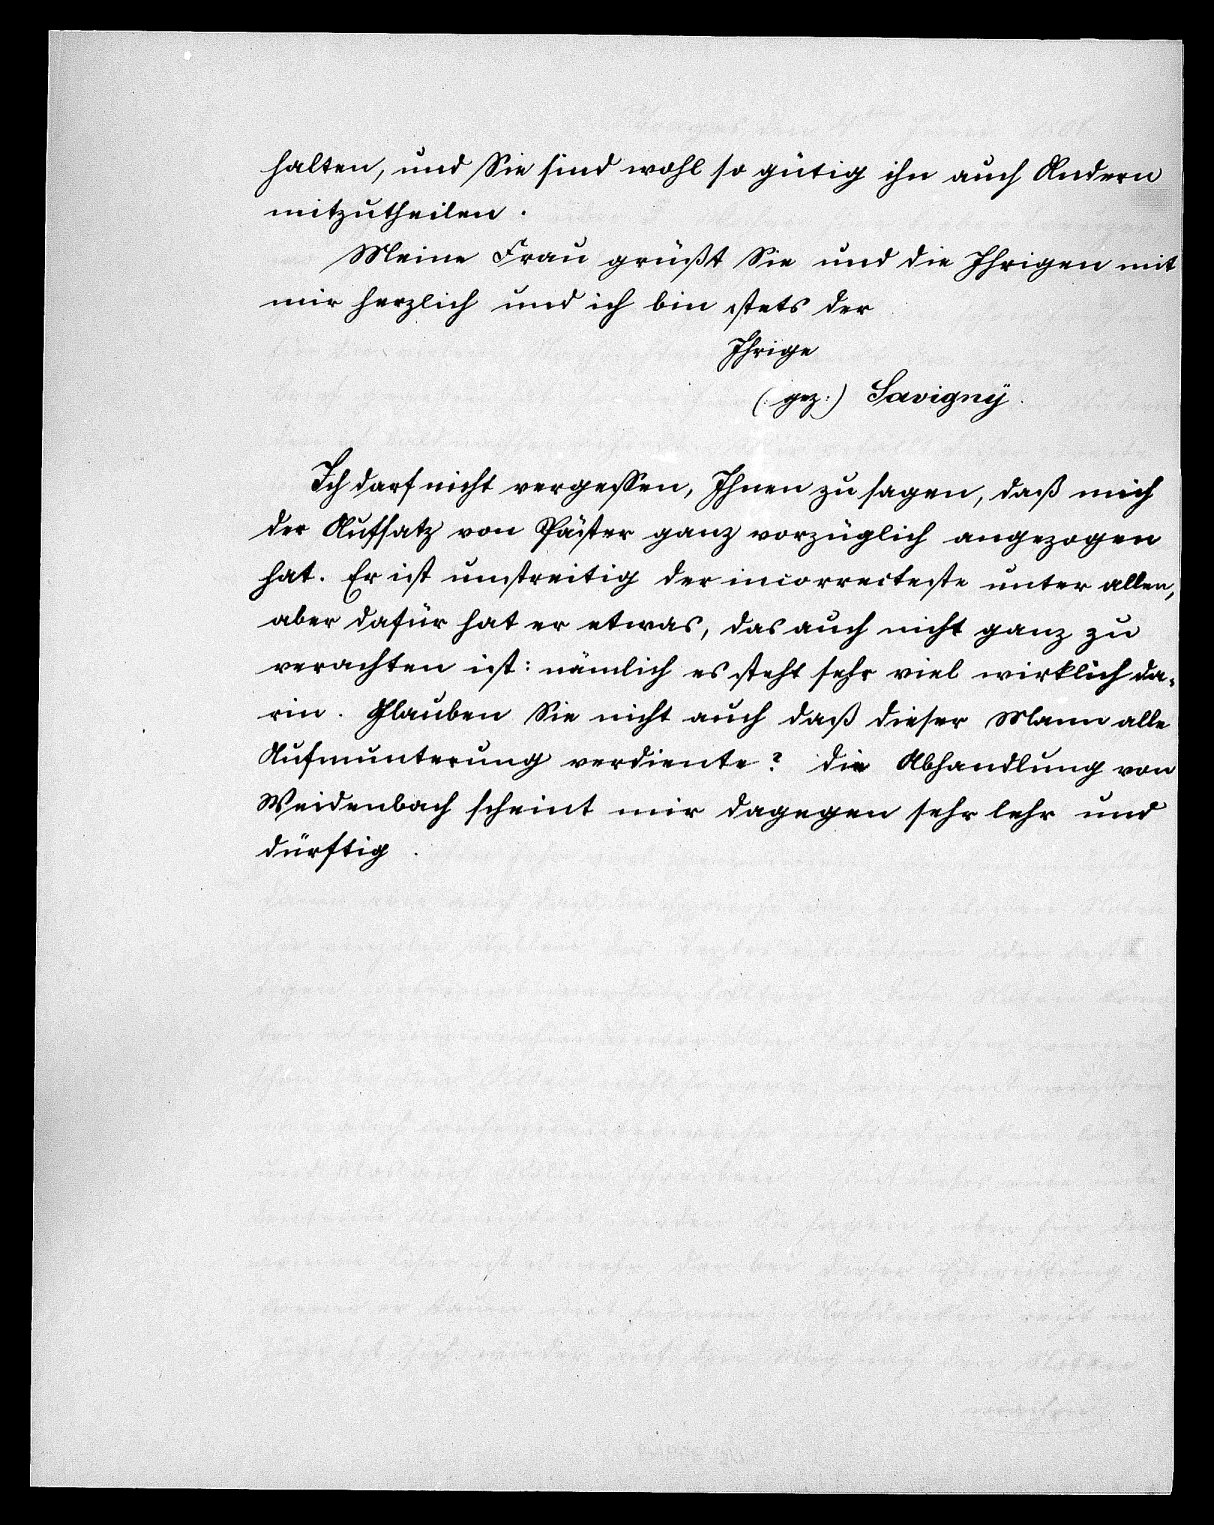 halten, und Sie sind wohl so gütig ihn auch Andern
mitzutheilen.
Meine Frau grüßt Sie und die Ihrigen mit
mir herzlich und ich bin stets der
Ihrige
(: gez:) Savigny.
Ich darf nicht vergessen, Ihnen zu sagen, daß mich
der Aufsatz von Päster ganz vorzüglich angezogen
hat. Er ist unstreitig der incorrecteste unter allen,
aber dafür hat er etwas, das auch nicht ganz zu
verachten ist: nämlich es steht sehr viel wirklich da-
rin. Glauben Sie nicht auch daß dieser Mann alle
Aufmunterung verdiente? die Abhandlung von
Weidenbach scheint mir dagegen sehr lehr und
dürftig.